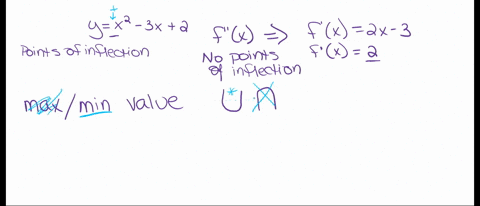 +
y = x² - 3x + 2
Points of inflection
f''(x) ⇒ f'(x) = 2x - 3
f''(x) = 2
No points
of inflection
max/min value ∪ ∩